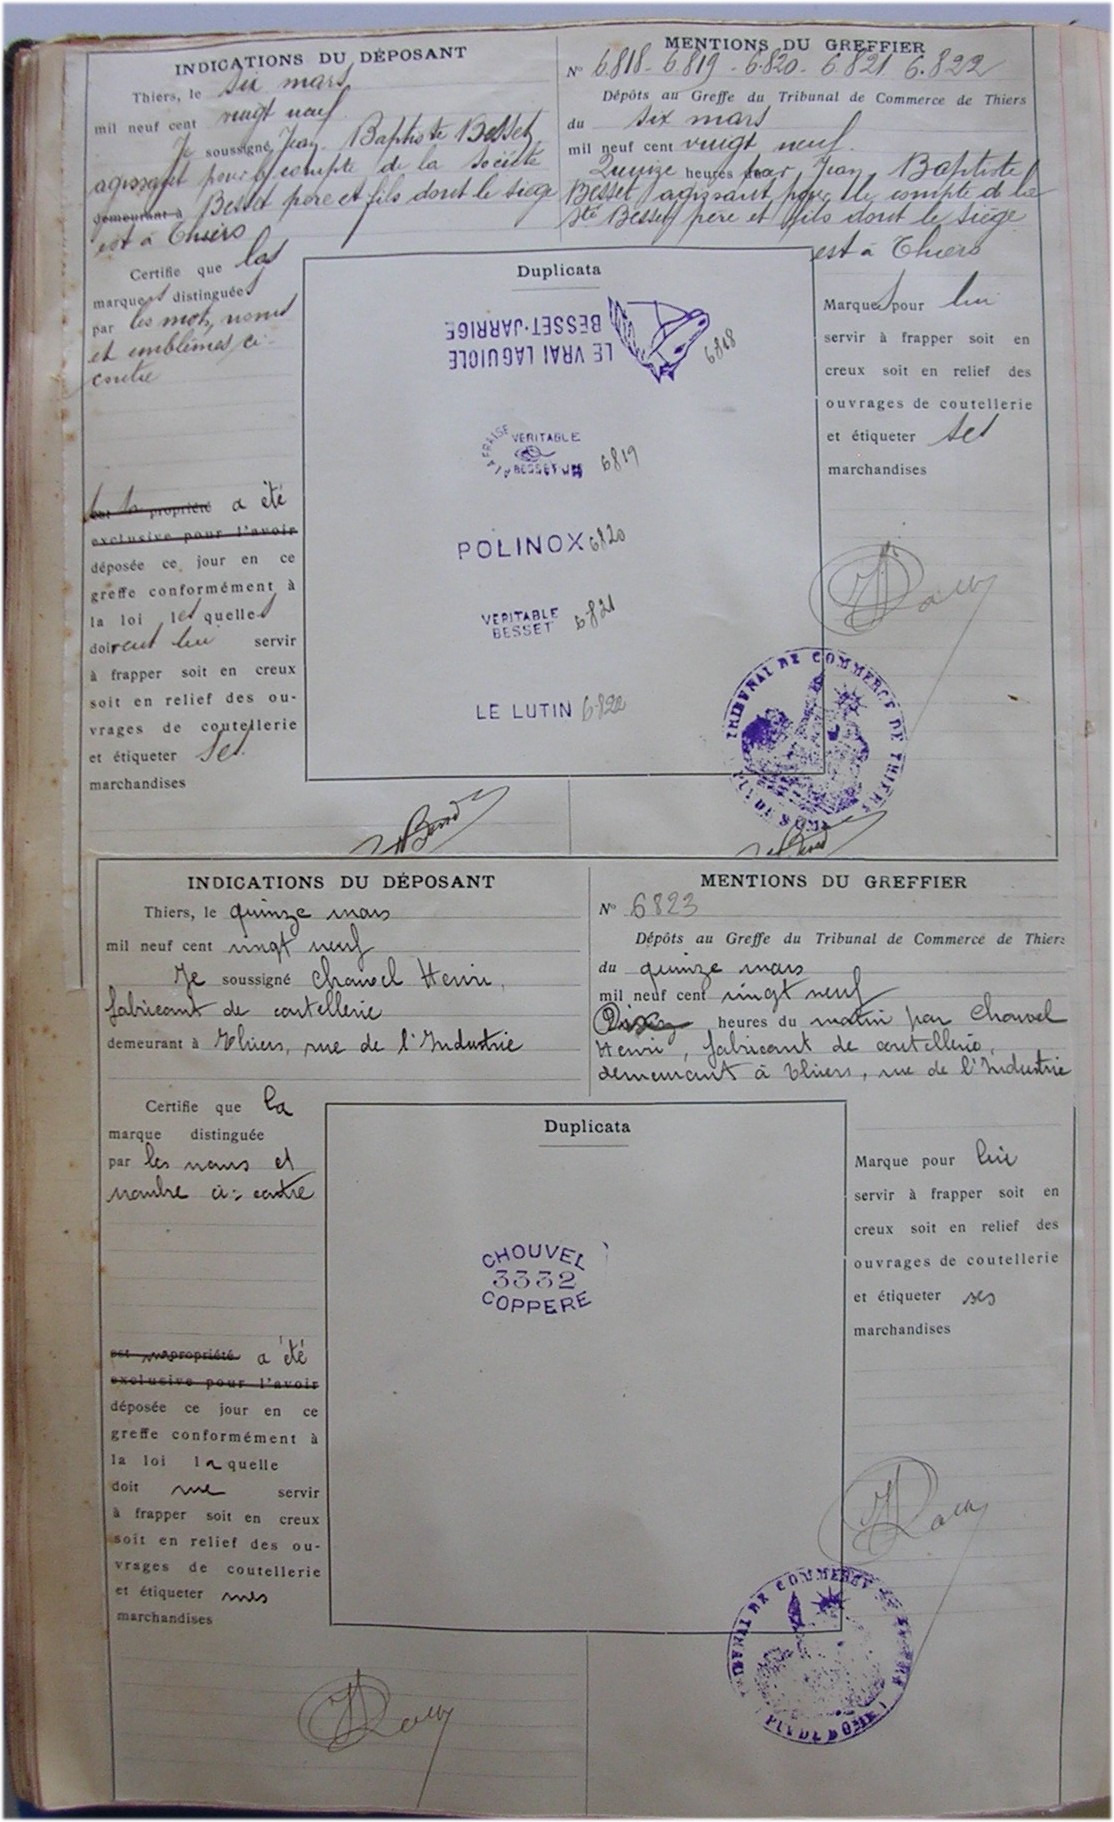 INDICATIONS DU DÉPOSANT
Thiers, le six mars
mil neuf cent vingt neuf
Je soussigné Jean Baptiste Besset
agissant pour le compte de la société
demeurant à Besset père et fils dont le siège
est à Thiers
Certifie que les
marques distinguées
par les mots, noms
et emblèmes ci-
contre
propriété a été
exclusive pour l'avoir
déposée ce jour en ce
greffe conformément à
la loi lesquelles
doivent lui servir
à frapper soit en creux
soit en relief des ou-
vrages de coutellerie
et étiqueter ses
marchandises
MENTIONS DU GREFFIER
N° 6818 - 6819 - 6820 - 6821 6.822
Dépôts au Greffe du Tribunal de Commerce de Thiers
du six mars
mil neuf cent vingt neuf.
Quinze heures par Jean Baptiste
Besset agissant pour le compte de la
Sté Besset père et fils dont le siège
est à Thiers
Duplicata
LE VRAI LAGUIOLE
BESSET-JARRIGE
6818
LA FRAISE
VERITABLE
BESSET
6819
POLINOX 6820
VERITABLE
BESSET
6821
LE LUTIN 6822
Marques pour lui
servir à frapper soit en
creux soit en relief des
ouvrages de coutellerie
et étiqueter ses
marchandises
TRIBUNAL DE COMMERCE DE THIERS
PUY DE DOME
INDICATIONS DU DÉPOSANT
Thiers, le quinze mars
mil neuf cent vingt neuf
Je soussigné Chouvel Henri,
fabricant de coutellerie
demeurant à Thiers, rue de l'Industrie
Certifie que la
marque distinguée
par les noms et
nombre ci-contre
est ma propriété a été
exclusive pour l'avoir
déposée ce jour en ce
greffe conformément à
la loi laquelle
doit me servir
à frapper soit en creux
soit en relief des ou-
vrages de coutellerie
et étiqueter mes
marchandises
MENTIONS DU GREFFIER
N° 6823
Dépôts au Greffe du Tribunal de Commerce de Thiers
du quinze mars
mil neuf cent vingt neuf
heures du matin par Chouvel
Henri, fabricant de coutellerie,
demeurant à Thiers, rue de l'Industrie
Duplicata
CHOUVEL
3332
COPPERE
Marque pour lui
servir à frapper soit en
creux soit en relief des
ouvrages de coutellerie
et étiqueter ses
marchandises
TRIBUNAL DE COMMERCE DE THIERS
PUY DE DOME